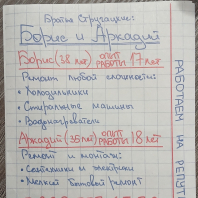 Братья Стругацкие:
Борис и Аркадий
Борис (38 лет) ОПЫТ РАБОТЫ 17 лет
Ремонт любой сложности:
• Холодильники
• Стиральные машины
• Водонагреватели
Аркадий (35 лет) ОПЫТ РАБОТЫ 18 лет
Ремонт и монтаж:
• Сантехники и электрики
• Мелкий бытовой ремонт
РАБОТАЕМ НА РЕПУТ